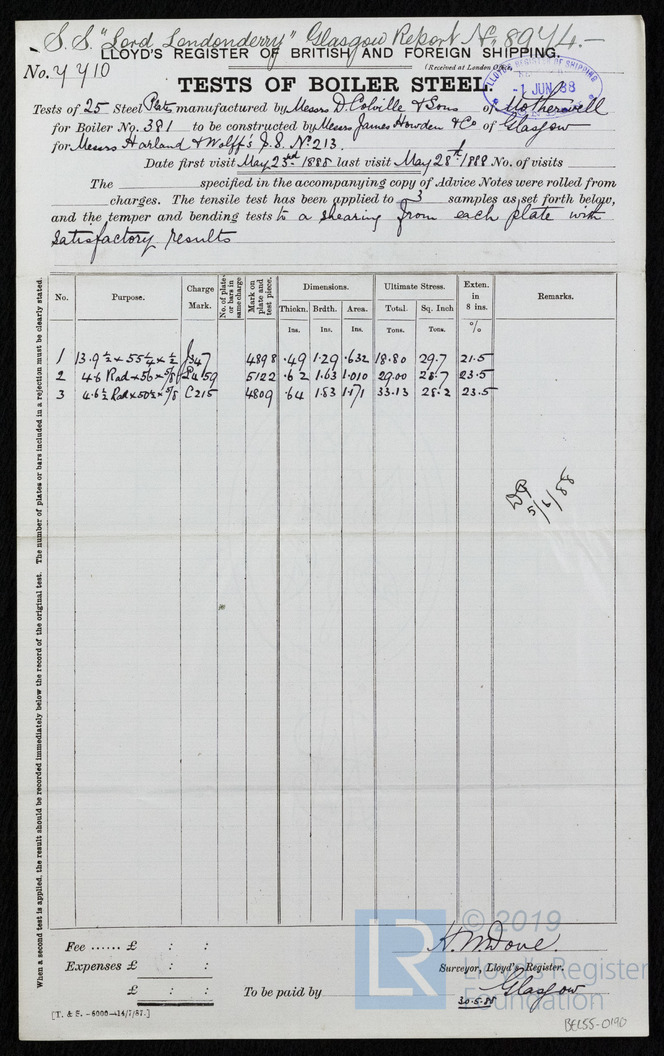 S.S. "Lord Londonderry" Glasgow Report No. 8974.-
LLOYD'S REGISTER OF BRITISH AND FOREIGN SHIPPING.
No. 7710
(Received at London Office,
LLOYD'S REGISTER OF SHIPPING
1 JUN 88
TESTS OF BOILER STEEL.
Tests of 25 Steel Plates manufactured by Messrs D. Colville & Sons of Motherwell
for Boiler No. 381 to be constructed by Messrs James Howden & Co of Glasgow
for Messrs Harland & Wolff's S.S. No 213.
Date first visit May 23rd 1888 last visit May 28th 1888 No. of visits
The specified in the accompanying copy of Advice Notes were rolled from
charges. The tensile test has been applied to 3 samples as set forth below,
and the temper and bending tests to a shearing from each plate with
satisfactory results
No. Purpose. Charge Mark. No. of plates or bars in same charge Mark on plate and test piece. Dimensions. Ultimate Stress. Exten. in 8 ins. Remarks.
Thickn. Brdth. Area. Total. Sq. Inch
Ins. Ins. Ins. Tons. Tons. %
1 13.9½ x 55¼ x ½ 4898 .49 1.29 .632 18.80 29.7 21.5
2 4.6 Rad x 56 x ⅝ 5122 .62 1.63 1.010 29.00 28.7 23.5
3 4.6½ Rad x 50½ x ⅝ C215 4809 .64 1.83 1.171 33.13 28.2 23.5
5/6/88
When a second test is applied, the result should be recorded immediately below the record of the original test. The number of plates or bars included in a rejection must be clearly stated.
Fee ...... £ : :
Expenses £ : :
£ : :
To be paid by
Surveyor, Lloyd's Register.
Glasgow
30.5.88
[T. & S. -6000-14/7/87.]
LR © 2019
Lloyd's Register
Foundation
BEL55-0190